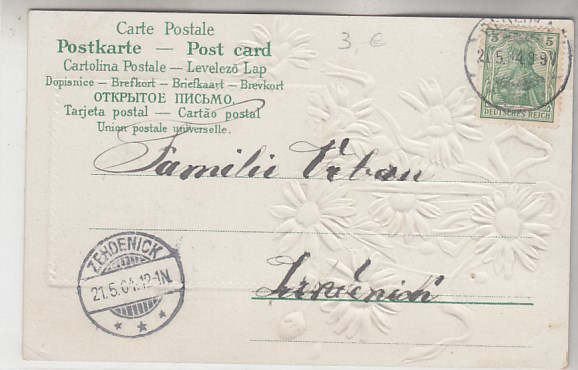 Carte Postale
Postkarte — Post card
Cartolina Postale — Levelező Lap
Dopisnice — Brefkort — Briefkaart — Brevkort
ОТКРЫТОЕ ПИСЬМО.
Tarjeta postal — Cartão postal
Union postale universelle.
3,€
5 5
DEUTSCHES REICH
21.5.
Familie Urban
Zehdenick
ZEHDENICK
21.5.04.12-1N.
* * *